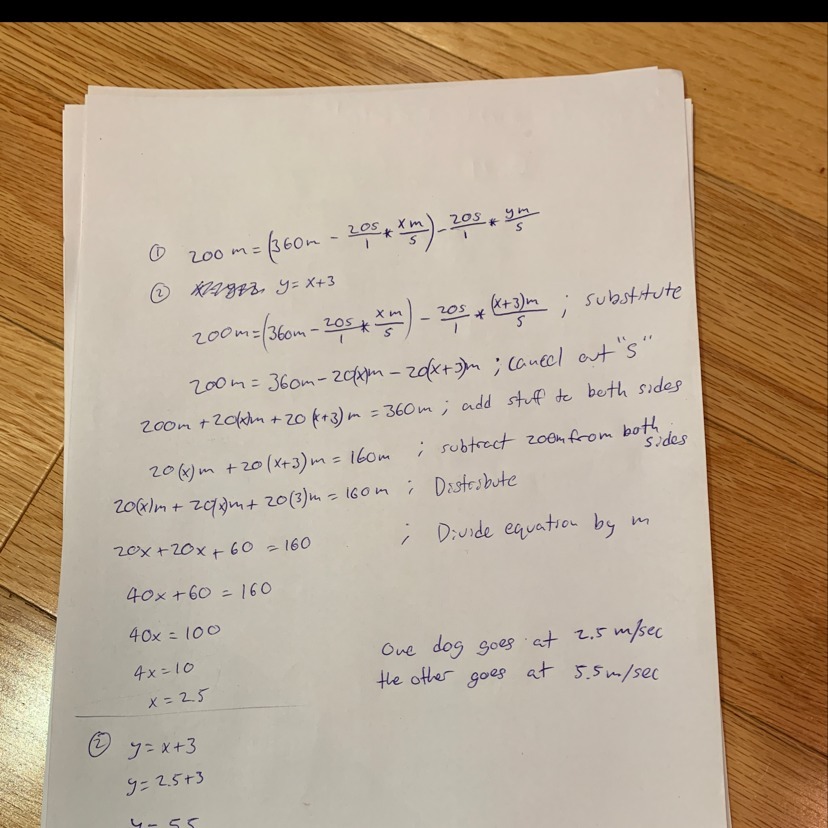 ① 200 m = (360m - 20s/1 * xm/s) - 20s/1 * ym/s
② y = x+3
200m = (360m - 20s/1 * xm/s) - 20s/1 * (x+3)m/s ; substitute
200m = 360m - 20(x)m - 20(x+3)m ; cancel out "s"
200m + 20(x)m + 20(x+3)m = 360m ; add stuff to both sides
20(x)m + 20(x+3)m = 160m ; subtract 200m from both sides
20(x)m + 20(x)m + 20(3)m = 160m ; Distribute
20x + 20x + 60 = 160 ; Divide equation by m
40x + 60 = 160
40x = 100
4x = 10
x = 2.5
One dog goes at 2.5 m/sec
the other goes at 5.5 m/sec
② y = x+3
y = 2.5+3
y = 5.5